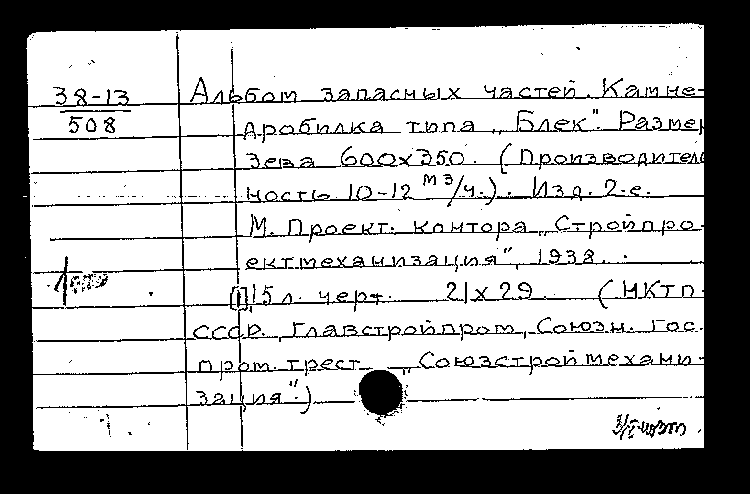 38-13
508
Альбом запасных частей. Камне-
дробилка типа „Блек". Размер
зева 600х350. (Производитель
ность 10-12 м3/ч.). Изд. 2-е.
М. Проект. контора „Стройпро-
ектмеханизация", 1938.
[1], 5 л. черт. 21х29 (НКТП.
СССР. Главстройпром, Союзн. Гос.
пром. трест „Союзстроймехани-
зация".)